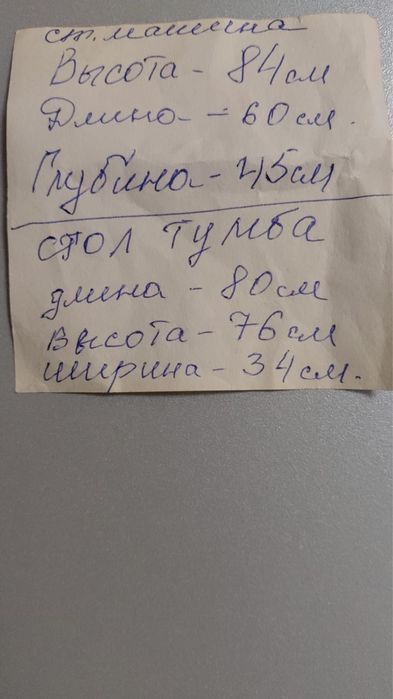 ст. машина
Высота - 84 см
Длина - 60 см.
Глубина - 45 см
стол тумба
длина - 80 см
высота - 76 см
ширина - 34 см.